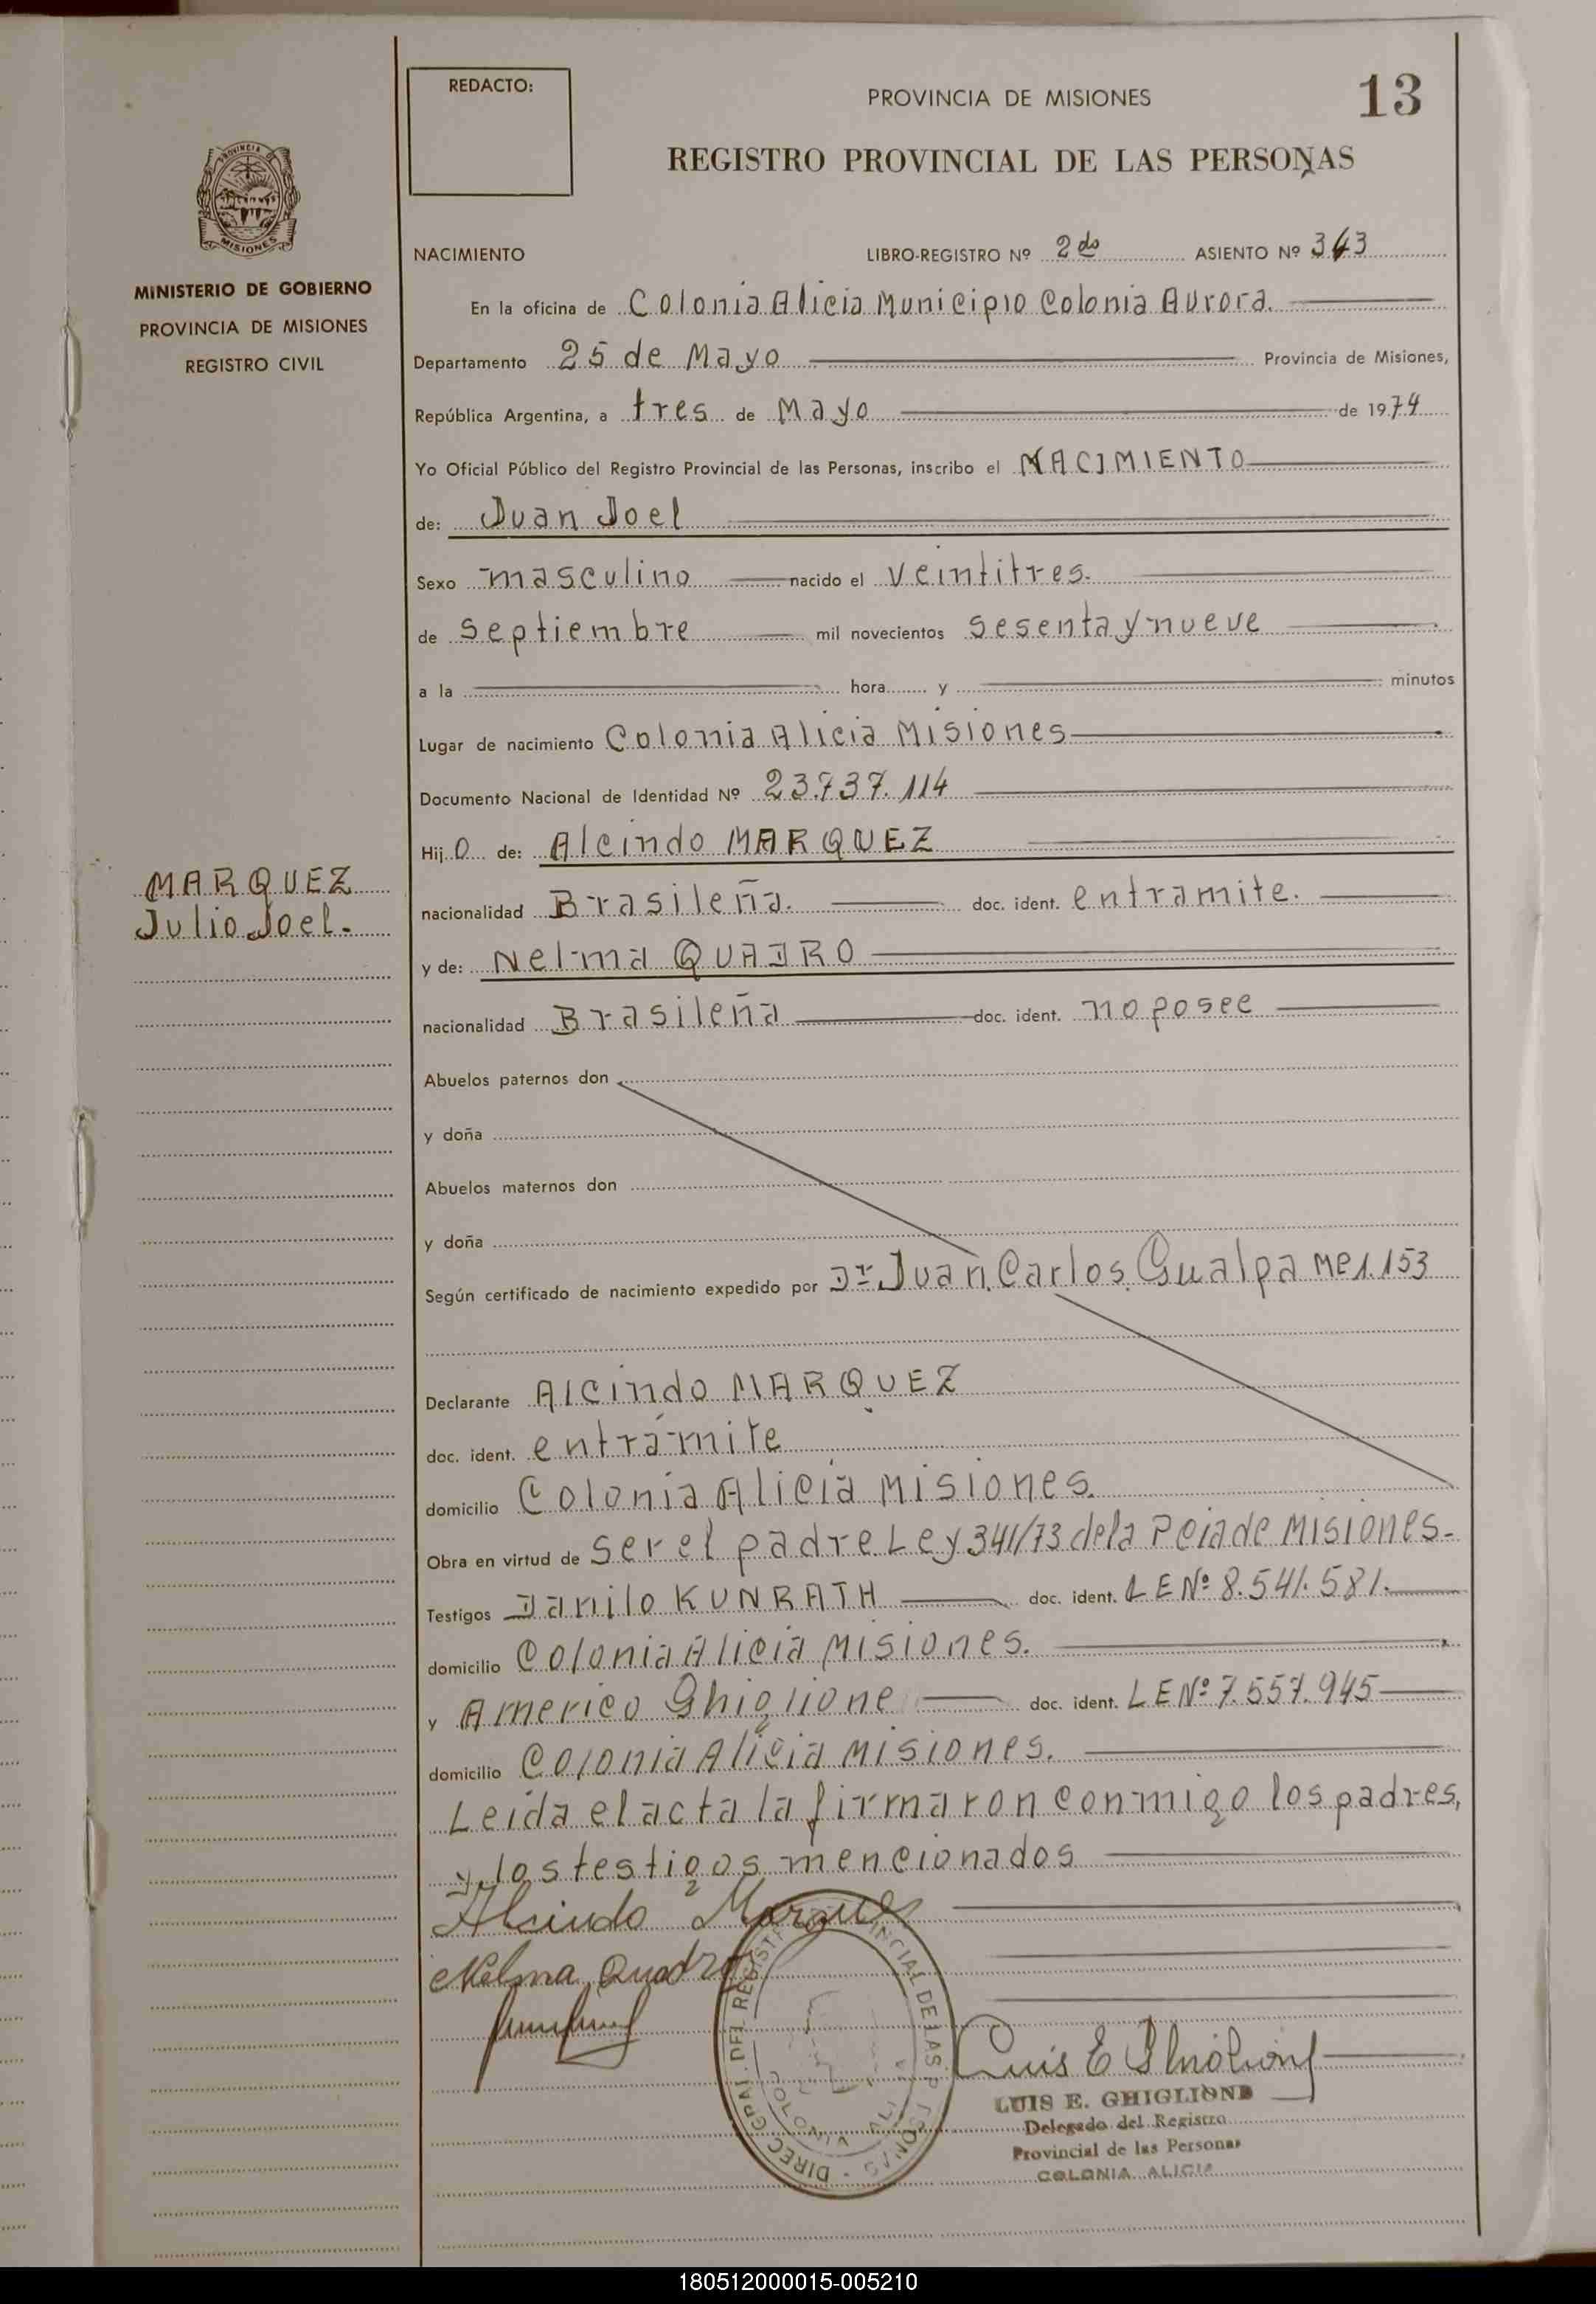 REDACTO:
PROVINCIA DE MISIONES
13
REGISTRO PROVINCIAL DE LAS PERSONAS
PROVINCIA DE
MISIONES
MINISTERIO DE GOBIERNO
PROVINCIA DE MISIONES
REGISTRO CIVIL
NACIMIENTO LIBRO-REGISTRO Nº 2do ASIENTO Nº 343
En la oficina de Colonia Alicia Municipio Colonia Aurora.
Departamento 25 de Mayo Provincia de Misiones,
República Argentina, a tres de Mayo de 1974
Yo Oficial Público del Registro Provincial de las Personas, inscribo el NACIMIENTO
de: Juan Joel
Sexo masculino nacido el veintitres.
de septiembre mil novecientos sesenta y nueve
a la hora y minutos
Lugar de nacimiento Colonia Alicia Misiones
Documento Nacional de Identidad Nº 23.737.114
Hijo de: Alcindo MARQUEZ
MARQUEZ
Julio Joel.
nacionalidad Brasileña. doc. ident. entramite.
y de: Nelma QUADRO
nacionalidad Brasileña doc. ident. no posee
Abuelos paternos don
y doña
Abuelos maternos don
y doña
Según certificado de nacimiento expedido por Dr. Juan Carlos Gualpa ME1.153
Declarante Alcindo MARQUEZ
doc. ident. entramite
domicilio Colonia Alicia Misiones.
Obra en virtud de ser el padre Ley 341/73 de la Pcia de Misiones-
Testigos Danilo KUNRATH doc. ident. LE Nº 8.541.581.
domicilio Colonia Alicia Misiones.
y Americo Ghiglione doc. ident. LE Nº 7.557.945
domicilio Colonia Alicia Misiones.
Leida el acta la firmaron conmigo los padres,
y los testigos mencionados
Alcindo Marques
Nelma Quadro
DIREC. GRAL. DEL REGIST INCIAL DE LAS P SONAS
COLONIA ALI
Luis E Ghiglione
LUIS E. GHIGLIONE
Delegado del Registro
Provincial de las Personas
COLONIA ALICIA
180512000015-005210